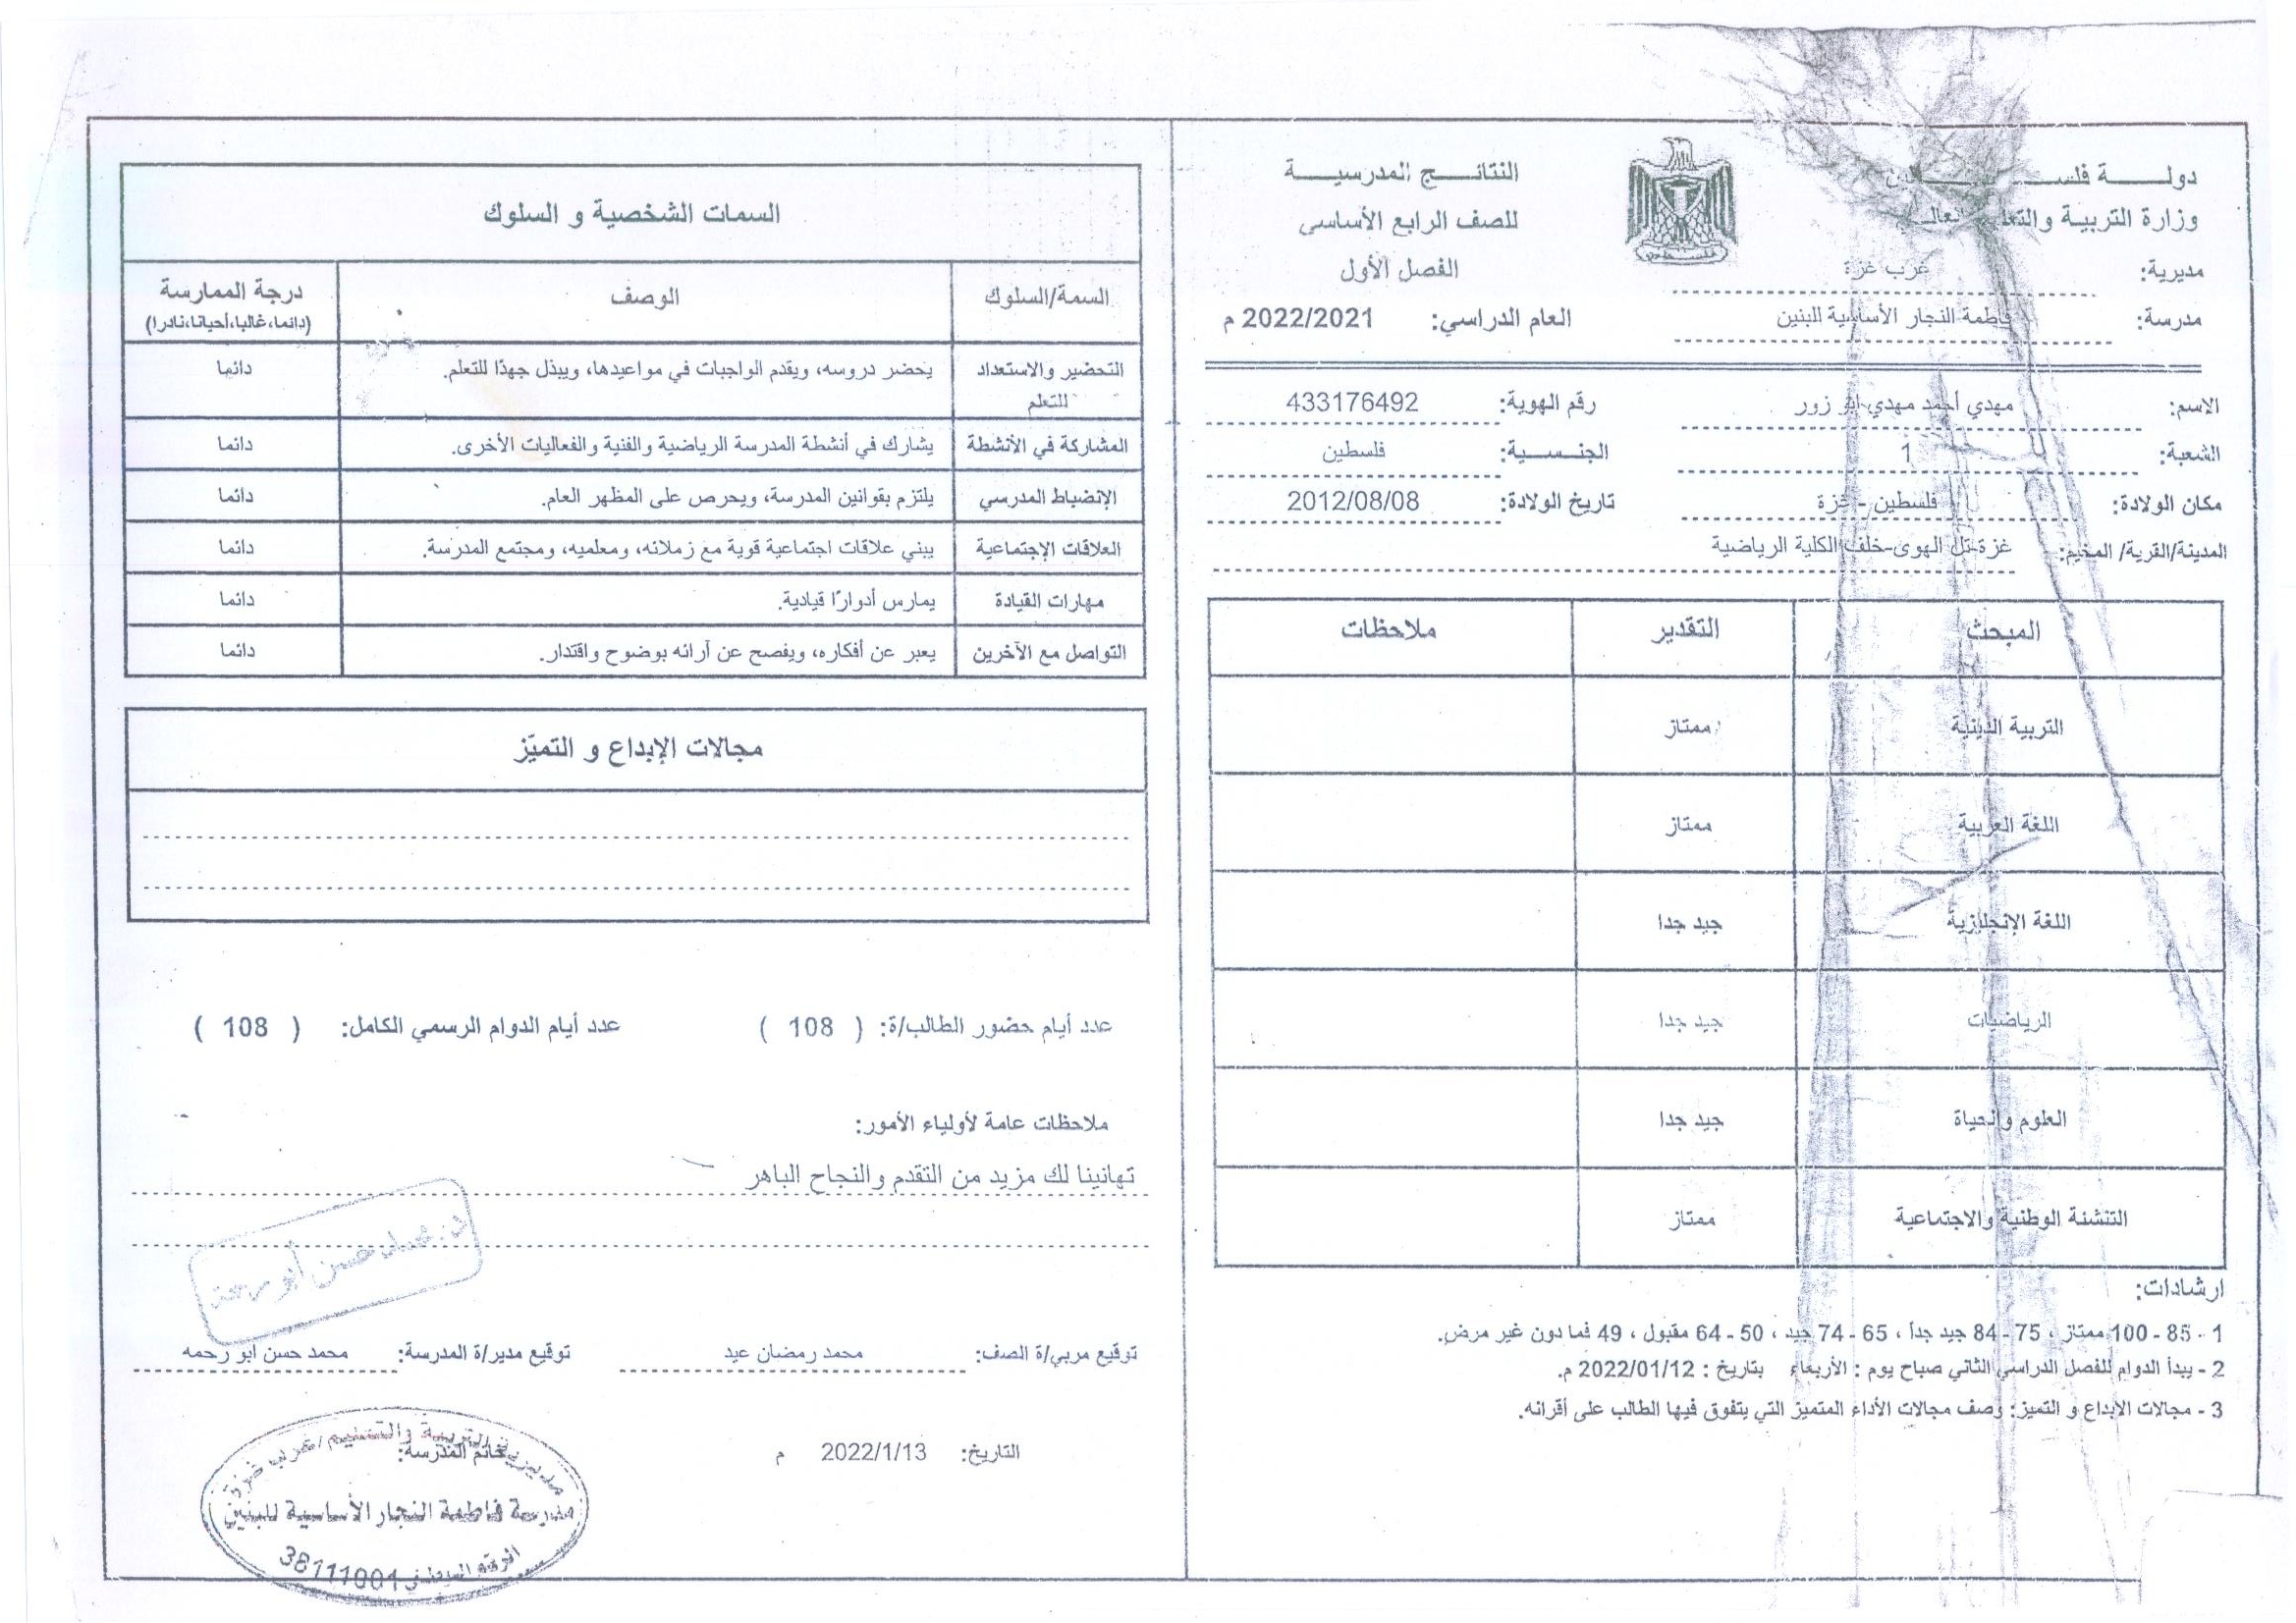 دولـــة فلســـطين
وزارة التربية والتعليم العالي
مديرية: غرب غزة
مدرسة: فاطمة النجار الأساسية للبنين
النتائـــج المدرسيـــة
للصف الرابع الأساسي
الفصل الأول
العام الدراسي: 2022/2021 م
الاسم: مهدي أحمد مهدي ابو زور
رقم الهوية: 433176492
الشعبة: 1
الجنـــسية: فلسطين
مكان الولادة: فلسطين - غزة
تاريخ الولادة: 2012/08/08
المدينة/القرية/ المخيم: غزة-تل الهوى-خلف الكلية الرياضية
المبحث التقدير ملاحظات
التربية الدينية ممتاز
اللغة العربية ممتاز
اللغة الإنجليزية جيد جدا
الرياضيات جيد جدا
العلوم والحياة جيد جدا
التنشئة الوطنية والاجتماعية ممتاز
ارشادات:
1 - 85 - 100 ممتاز ، 75 - 84 جيد جداً ، 65 - 74 جيد ، 50 - 64 مقبول ، 49 فما دون غير مرض.
2 - يبدأ الدوام للفصل الدراسي الثاني صباح يوم : الأربعاء بتاريخ : 2022/01/12 م.
3 - مجالات الإبداع و التميز: وصف مجالات الأداء المتميز التي يتفوق فيها الطالب على أقرانه.
السمات الشخصية و السلوك
السمة/السلوك الوصف درجة الممارسة
(دائما،غالبا،أحيانا،نادرا)
التحضير والاستعداد للتعلم يحضر دروسه، ويقدم الواجبات في مواعيدها، ويبذل جهدًا للتعلم. دائما
المشاركة في الأنشطة يشارك في أنشطة المدرسة الرياضية والفنية والفعاليات الأخرى. دائما
الإنضباط المدرسي يلتزم بقوانين المدرسة، ويحرص على المظهر العام. دائما
العلاقات الإجتماعية يبني علاقات اجتماعية قوية مع زملائه، ومعلميه، ومجتمع المدرسة. دائما
مهارات القيادة يمارس أدوارًا قيادية. دائما
التواصل مع الآخرين يعبر عن أفكاره، ويفصح عن آرائه بوضوح واقتدار. دائما
مجالات الإبداع و التميّز
عدد أيام حضور الطالب/ة: ( 108 ) عدد أيام الدوام الرسمي الكامل: ( 108 )
ملاحظات عامة لأولياء الأمور:
تهانينا لك مزيد من التقدم والنجاح الباهر
د. محمد حسن أبو رحمة
توقيع مربي/ة الصف: محمد رمضان عيد توقيع مدير/ة المدرسة: محمد حسن ابو رحمه
التاريخ: 2022/1/13 م خاتم المدرسة:
مديرية التربية والتعليم/غرب غزة
مدرسة فاطمة النجار الأساسية للبنين
الرقم الوطني 38111001